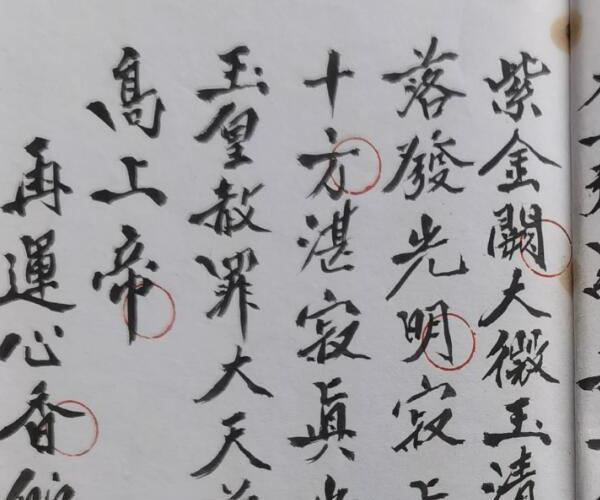 紫金闕大微玉清
落發光明寂
十方湛寂眞
玉皇赦罪大天
高上帝
再運心香